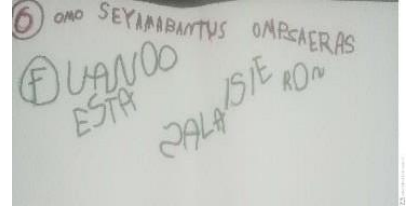 6 OMO SEYAMABANTUS OMPSAERAS
F UANDO
ESTA SALA ISIERON